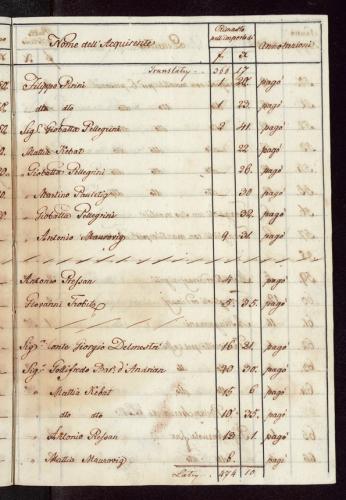 Nome dell'Acquirente Rimasto sull'importo di Annotazioni
f. x
Translato 360 17
Filippo Pirini 1 22. pagò
dto dto 1 23. pagò
Sig. Giobatta Pellegrini 2 41. pagò
Mattia Kebat 22 pagò
Giobatta Pellegrini 36. pagò
" Martino 30 pagò
" Giobatta Pellegrini 32. pagò
" Antonio Maurovig 9 31. pagò
Antonio Pressan 4 pagò
Giovanni 5 35. pagò
Sig. Conte Giorgio Delmestri 16 21. pagò
Sig. Gottifredo Bar. d'Andrian 40 30. pagò
" Mattia Kebat 15 6 pagò
dto dto 10 35. pagò
" Antonio Pressan 1. pagò
" Mattia Maurovig 6. pagò
Latus 474 10